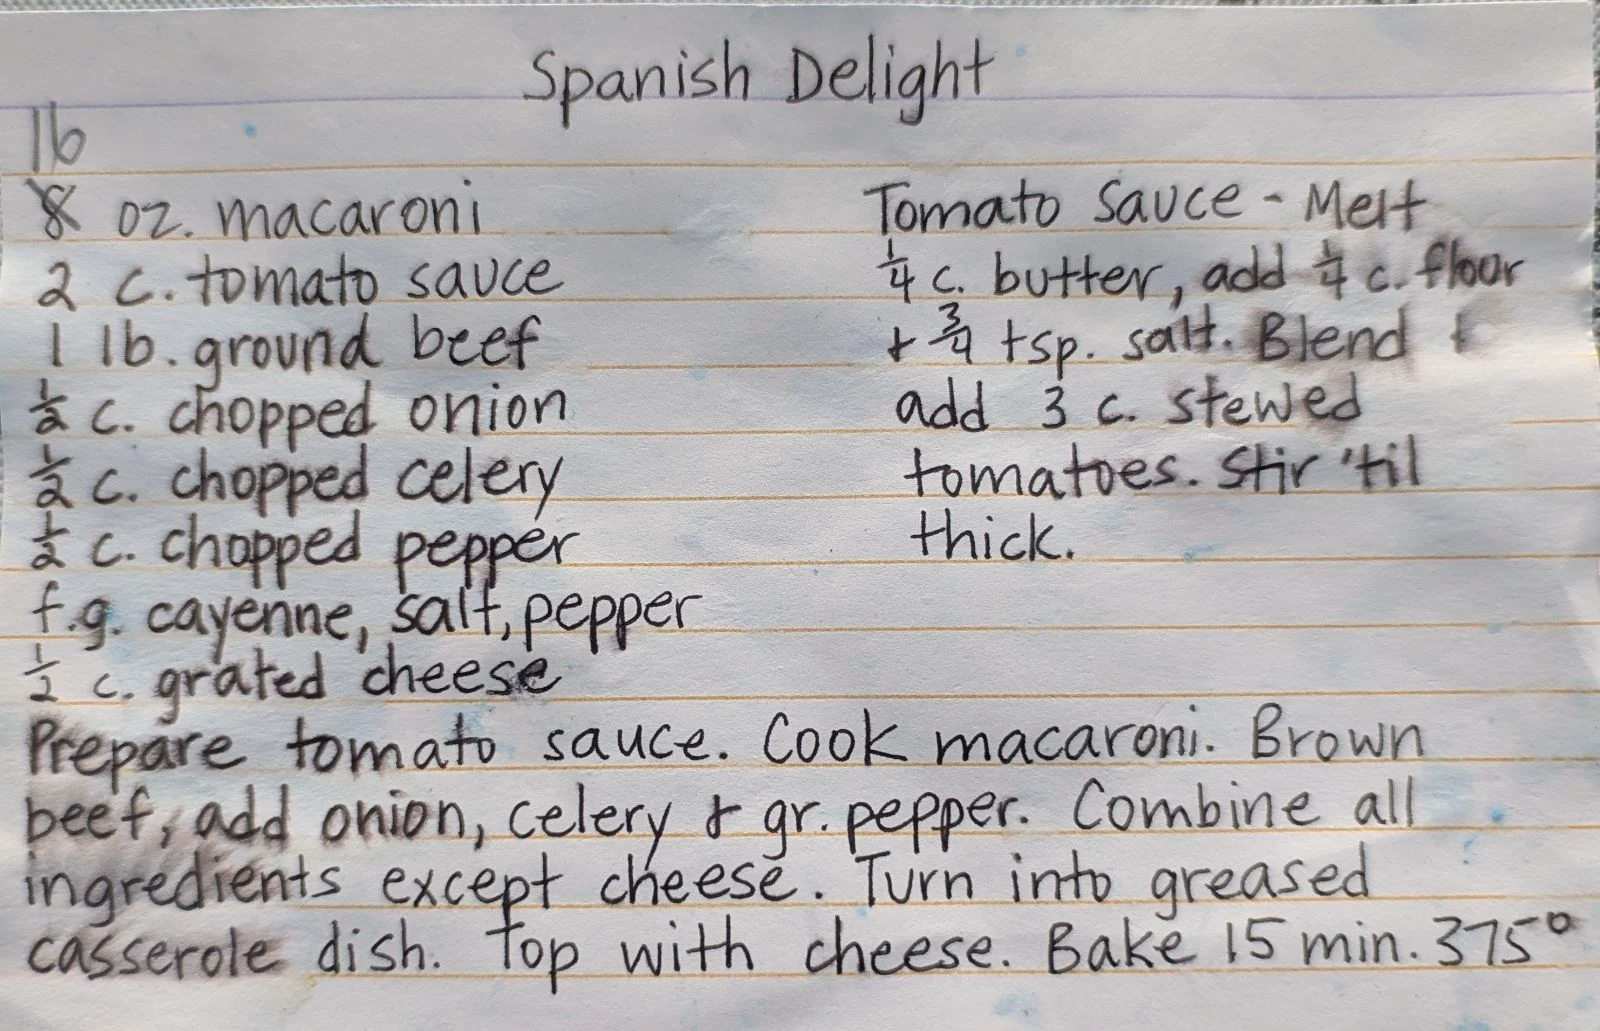 Spanish Delight
16
8 oz. macaroni
2 c. tomato sauce
1 lb. ground beef
1/2 c. chopped onion
1/2 c. chopped celery
1/2 c. chopped pepper
f.g. cayenne, salt, pepper
1/2 c. grated cheese
Tomato Sauce - Melt
1/4 c. butter, add 1/4 c. flour
+ 3/4 tsp. salt. Blend +
add 3 c. stewed
tomatoes. Stir 'til
thick.
Prepare tomato sauce. Cook macaroni. Brown
beef, add onion, celery + gr. pepper. Combine all
ingredients except cheese. Turn into greased
casserole dish. Top with cheese. Bake 15 min. 375°